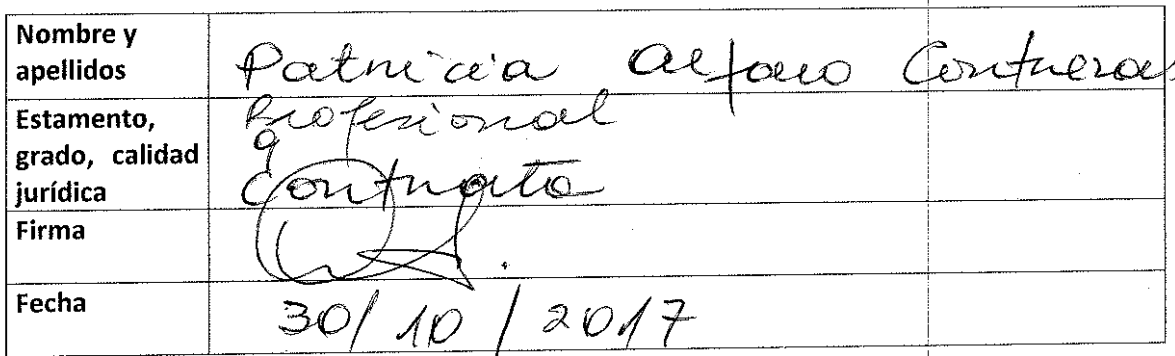 Nombre y
apellidos
Patricia Alfaro Contreras
Estamento,
grado, calidad
jurídica
Profesional
9
Contrata
Firma
Fecha
30/10/2017